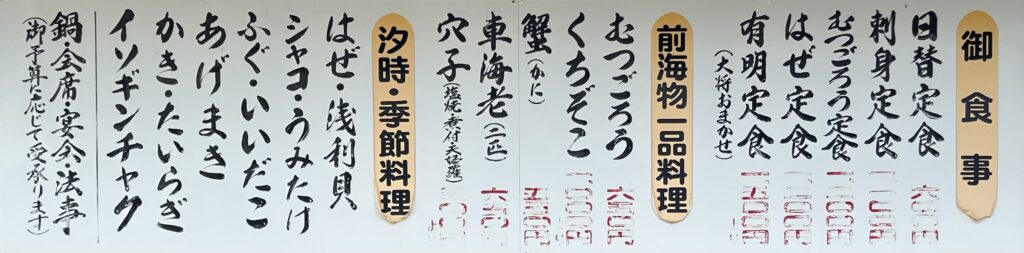 御食事
日替定食
刺身定食
むつごろう定食
はぜ定食
有明定食
(大将おまかせ)
前海物一品料理
むつごろう
くちぞこ
蟹(かに)
車海老(二匹)
穴子(塩焼 煮付 天婦羅)
汐時・季節料理
はぜ・浅利貝
シャコ・うみたけ
ふぐ・いいだこ
あげまき
かき・たいらぎ
イソギンチャク
鍋・会席・宴会・法事
(御予算に応じて受承ります)